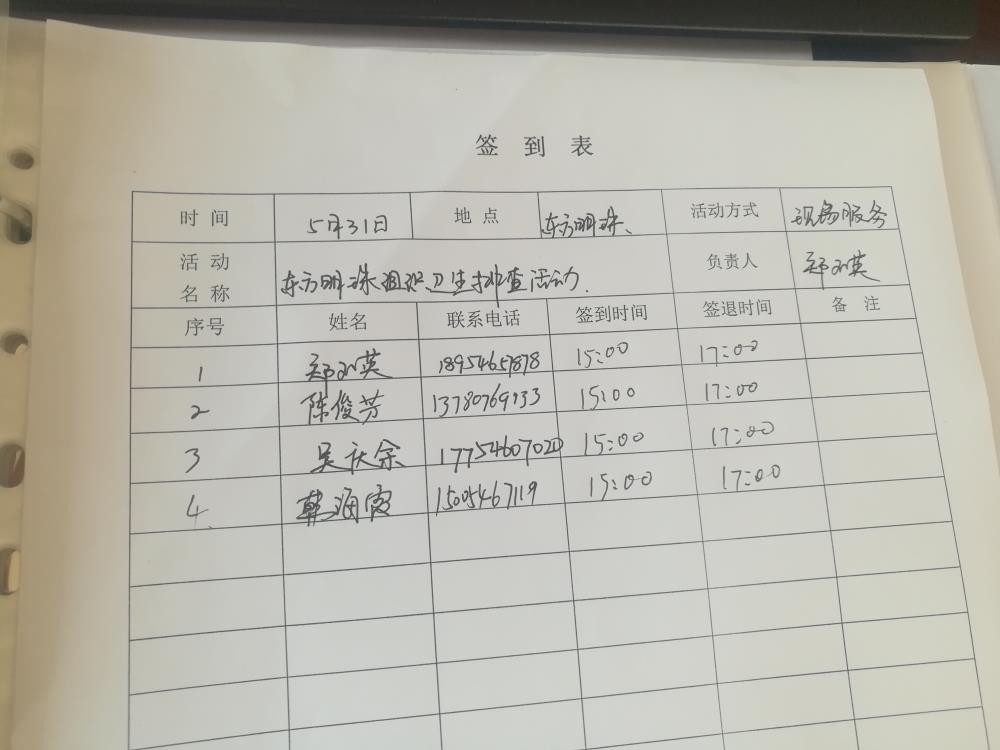 签 到 表
时 间 5月31日 地 点 东方明珠、 活动方式 现场服务
活 动 名 称 东方明珠组织卫生排查活动. 负责人 郑小英
序号 姓名 联系电话 签到时间 签退时间 备 注
1 郑小英 18954657878 15:00 17:00
2 陈俊芳 13780769133 15:00 17:00
3 吴庆余 17754607020 15:00 17:00
4 韩海霞 1505467119 15:00 17:00